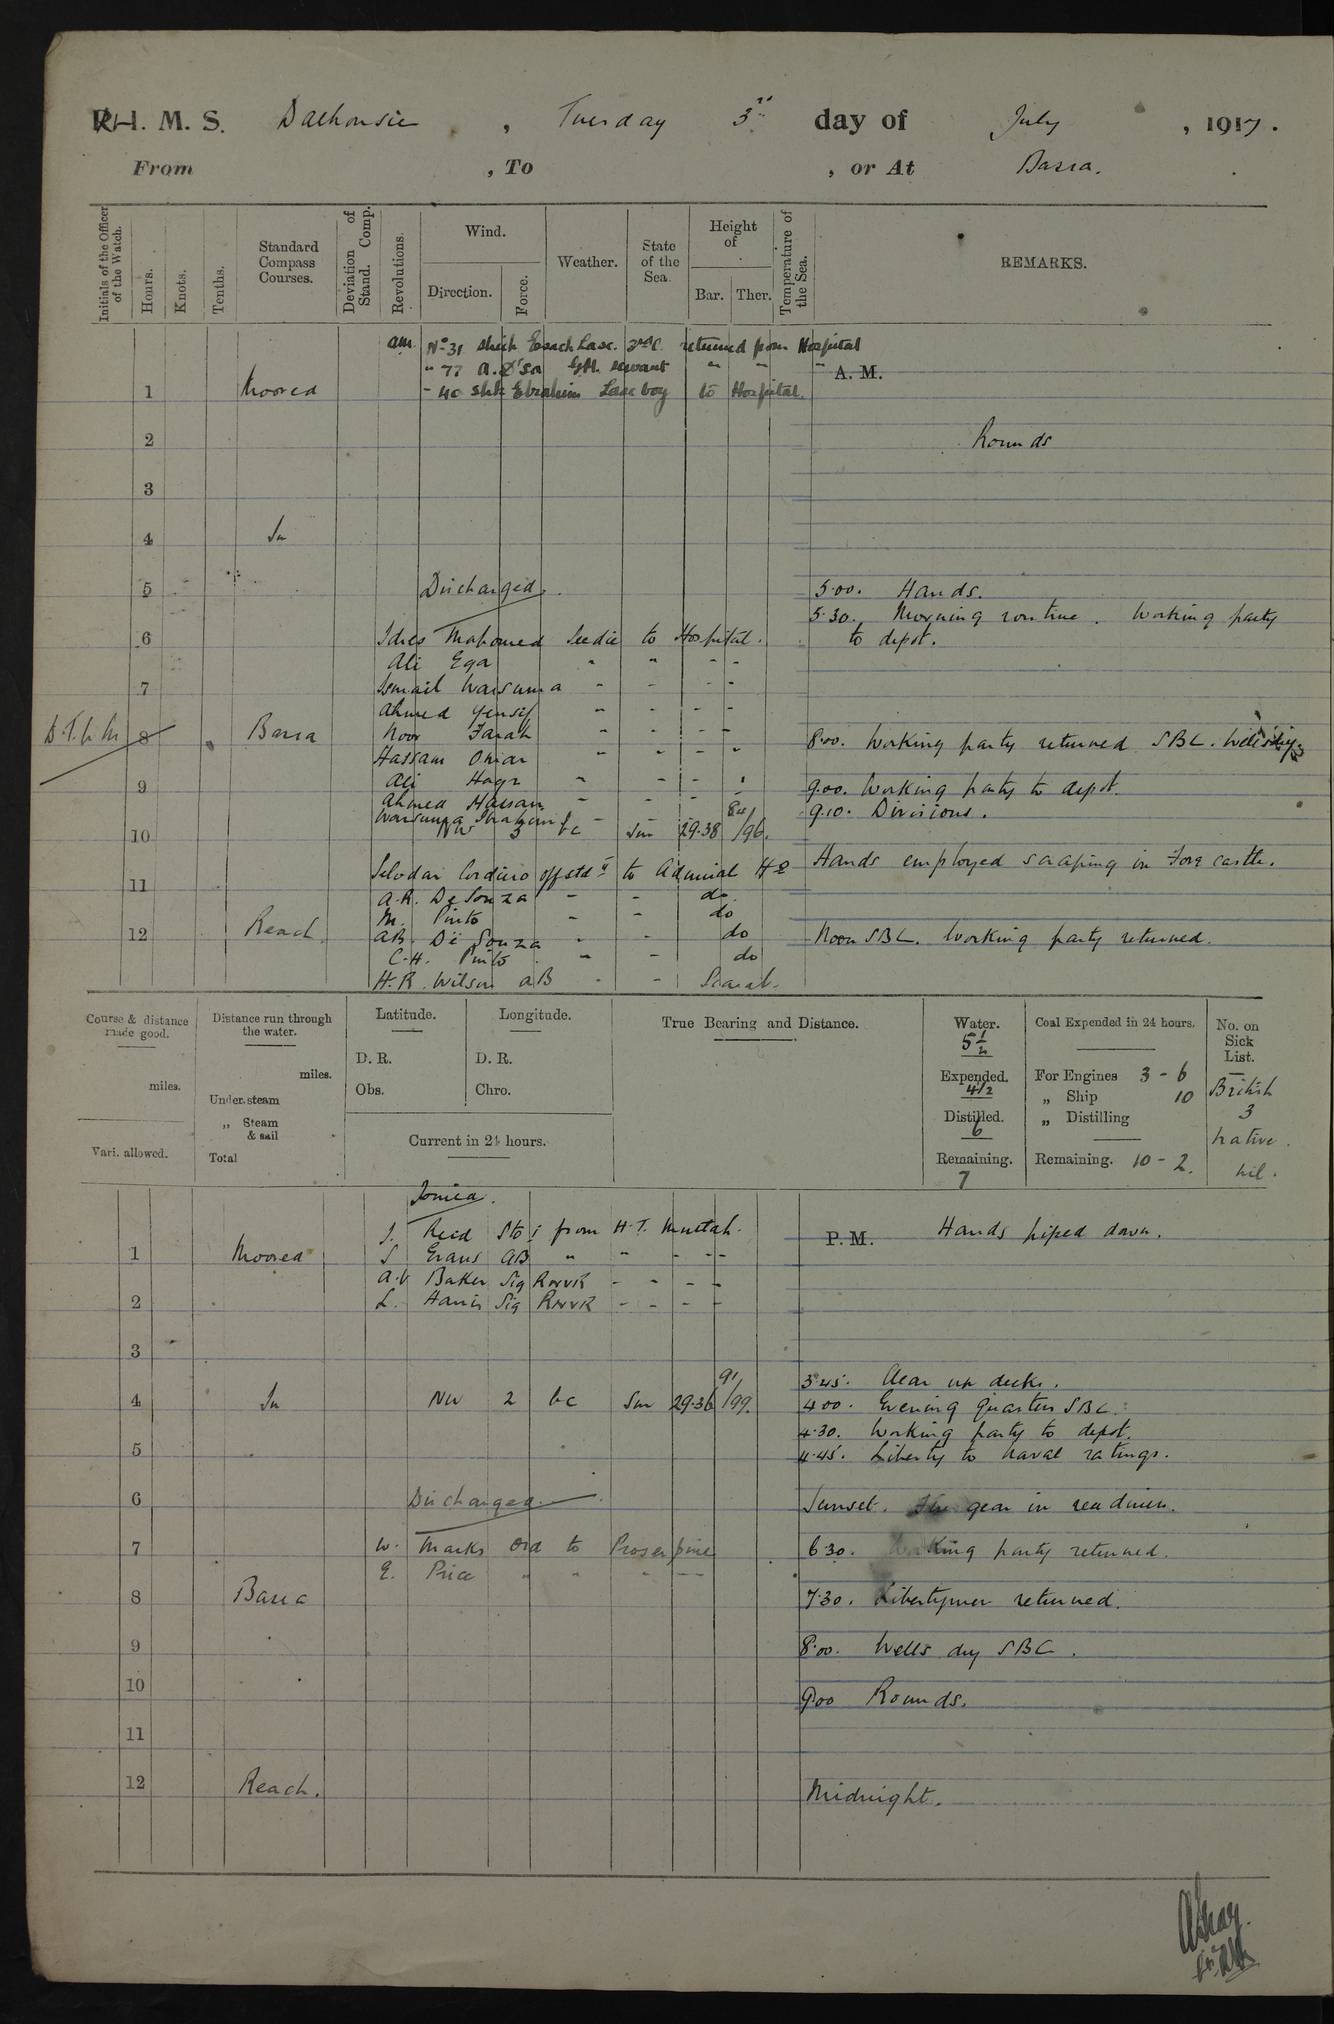 H. M. S. Dalhousie , Tuesday 3rd day of July , 1917.
From , To , or At Basra.
Initials of the Officer of the Watch.
Hours.
Knots.
Tenths.
Standard Compass Courses.
Deviation of Stand. Comp.
Revolutions.
Wind.
Direction.
Force.
Weather.
State of the Sea.
Height of
Bar. Ther.
Temperature of the Sea.
REMARKS.
am. No 31 Sheik Esack Lasc. 2nd C. returned from Hospital
" 77 A. D'Sa servant " " "
A. M.
1 Moored - 40 Shk Ebrahim Lasc boy to Hospital.
2 Rounds
3
4 In
5 Discharged. 5.00. Hands.
5.30. Morning routine. Working party
6 Idris Mahomed Seedie to Hospital. to depot.
Ali Ega " " - -
7 Ismail Warsama - - - -
Ahmed Yensif - - - -
8 Basra Noor Farah " - - - 8.00. Working party returned SBC. Wells dry.
Hassam Omar " - - "
9 Ali Hagi - - - " 9.00. Working party to depot.
Ahmed Hassan - - - - 9.10. Divisions.
Warsama Ibrahim -
10 NW 3 bc Sm 29.38 84/96.
Hands employed scaping in Fore castle.
11 Salvdar Cordiero offstd II to Admiral HQ
A.R. DeSouza - - do
M. Pinto - - do
12 Reach. A.B. De Souza - - do Noon SBC. Working party returned.
C.H. Pinto - - do
H.R. Wilson AB - - Scarab.
Course & distance made good.
miles.
Vari. allowed.
Distance run through the water.
miles.
Under steam
„ Steam & sail
Total
Latitude.
D. R.
Obs.
Longitude.
D. R.
Chro.
Current in 24 hours.
True Bearing and Distance.
Water.
5 1/2
Expended.
4 1/2
Distilled.
6
Remaining.
7
Coal Expended in 24 hours.
For Engines 3 - 6
„ Ship 10
„ Distilling
Remaining. 10 - 2.
No. on Sick List.
British
3
Native.
Nil.
Joined.
J. Reid Sto I from H.T. Muttah. P. M. Hands piped down.
1 Moored S Evans AB " " - - -
A.V Baker Sig RNVR - - - -
2 L. Harris Sig RNVR - - - -
3
3.45. Clear up decks.
4 In NW 2 bc Sm 29.36 91/99. 4.00. Evening quarters SBC.
4.30. Working party to depot.
5 4.45. Liberty to naval ratings.
6 Discharged Sunset. Fire gear in readiness.
7 W. Marks Ord to Proserpine 6.30. Working party returned.
E. Price " " " - -
8 Basra 7.30. Libertymen returned.
9 8.00. Wells dry SBC.
10 9.00 Rounds.
11
12 Reach. Midnight.